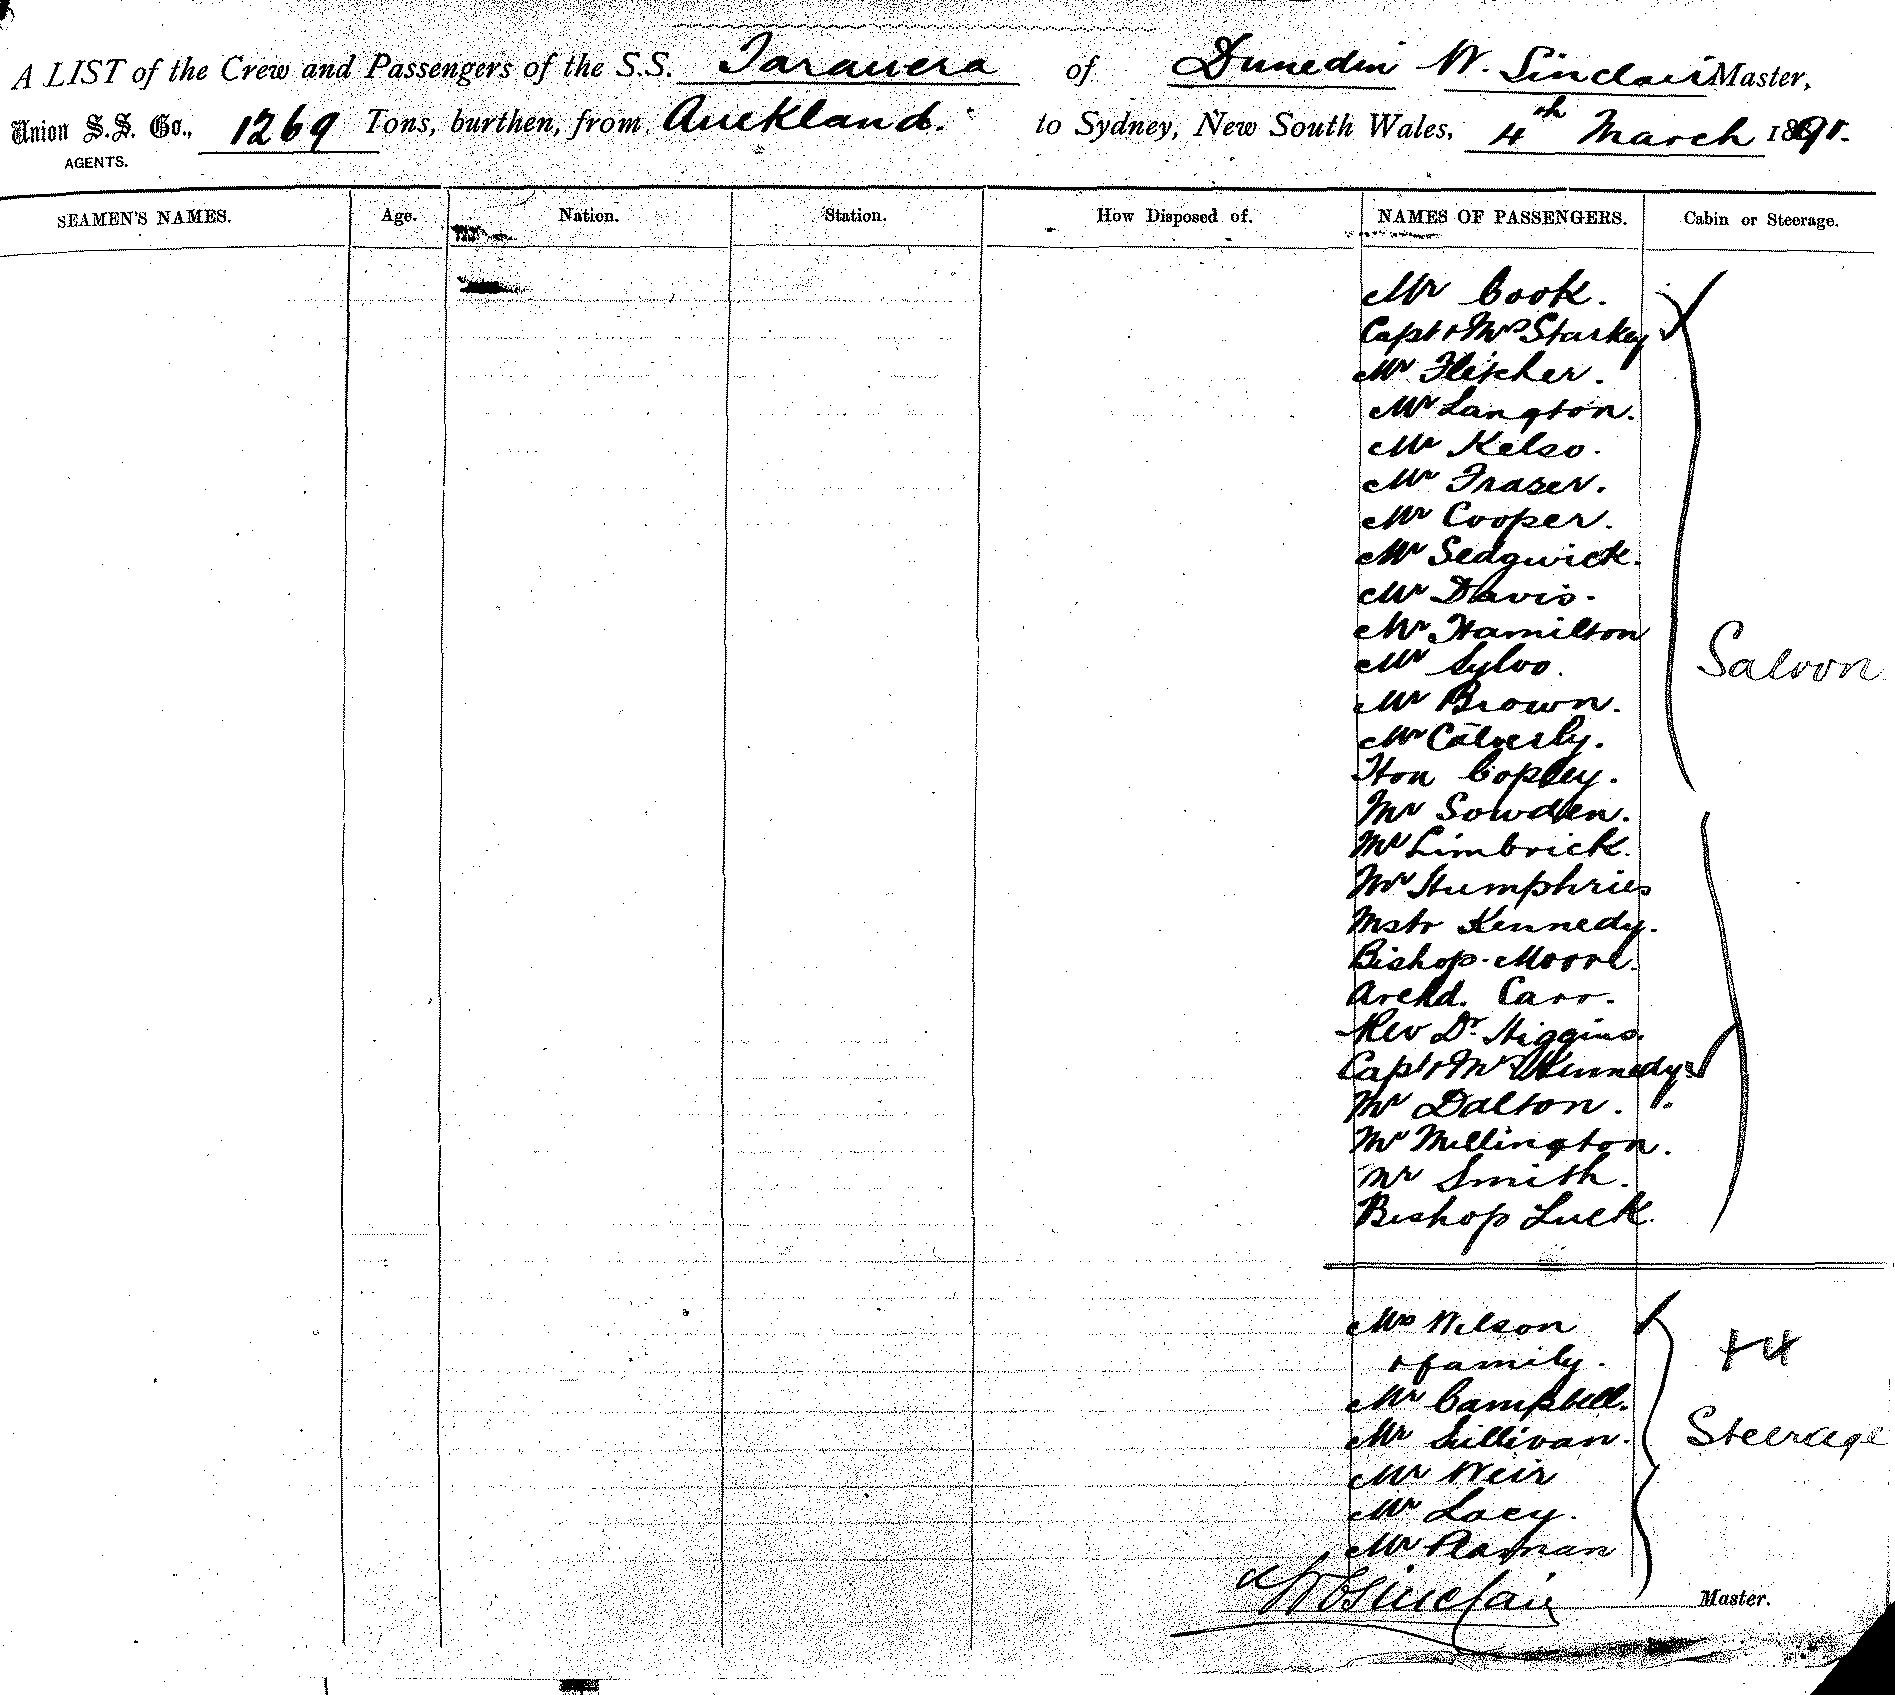 A LIST of the Crew and Passengers of the S.S. Tarawera of Dunedin W. Sinclair Master,
Union S.S. Co., 1269 Tons, burthen, from Auckland. to Sydney, New South Wales, 4th March 1891.
AGENTS.
SEAMEN'S NAMES. Age. Nation. Station. How Disposed of. NAMES OF PASSENGERS. Cabin or Steerage.
Mr Cook.
Capt & Mrs Starkey
Mr Fletcher.
Mr Langton.
Mr Kelso.
Mr Fraser.
Mr Cooper.
Mr Sedgwick.
Mr Davis.
Mr Hamilton
Saloon
Mr Sylvo.
Mr Brown.
Mr Calverly.
Hon Copley.
Mr Sowden.
Mr Limbrick.
Mr Humphries
Mstr Kennedy.
Bishop Moore.
Archd. Carr.
Rev Dr. Higgins.
Capt & Mrs Kennedy
Mr Dalton.
Mr Millington.
Mr Smith.
Bishop Luck.
Mrs Wilson
& family.
Mr Campbell.
Mr Sullivan.
Steerage
Mr Weir
Mr Lacy.
Mr
W Sinclair Master.